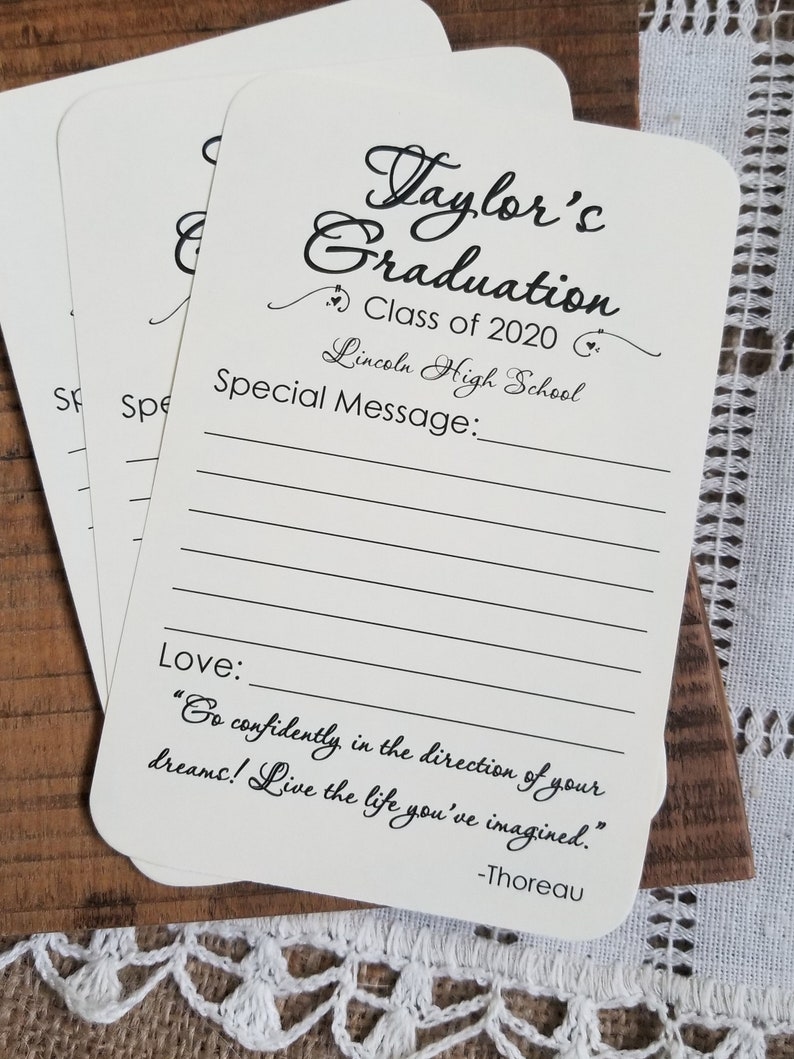 Taylor's
Graduation
Class of 2020
Lincoln High School
Special Message:
Love:
"Go confidently in the direction of your
dreams! Live the life you've imagined."
-Thoreau
Sp
Spe